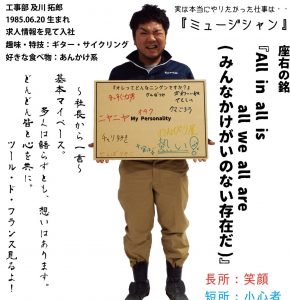 工事部 及川 拓郎
1985.06.20 生まれ
求人情報を見て入社
趣味・特技：ギター・サイクリング
好きな食べ物：あんかけ系
実は本当にやりたかった仕事は・・
『ミュージシャン』
座右の銘
『All in all is
all we all are
(みんなかけがいのない存在だ)』
「オレってどんなニンゲンですか？」
ニヤニヤ
オタク
My Personality
優しい
～社長から一言～
基本マイペース。
多くは語らずとも、想いはあります。
どんどん皆と心を共に。
ツール・ド・フランス見るよ！
長所：笑顔
短所：小心者